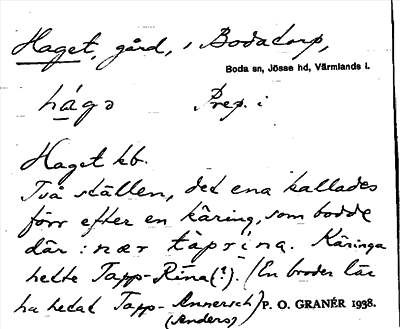 Haget, gård, i Bodatorp,
Boda sn, Jösse hd, Värmlands l.
hágə Prep. i
Haget kb.
Två ställen, det ena kallades
förr efter en käring, som bodde
där: nær tàprína. Käringa
hette Tapp-Rina(?). (En broder lär
ha hetat Tapp-Annersch) P. O. GRANÉR 1938.
(Anders)